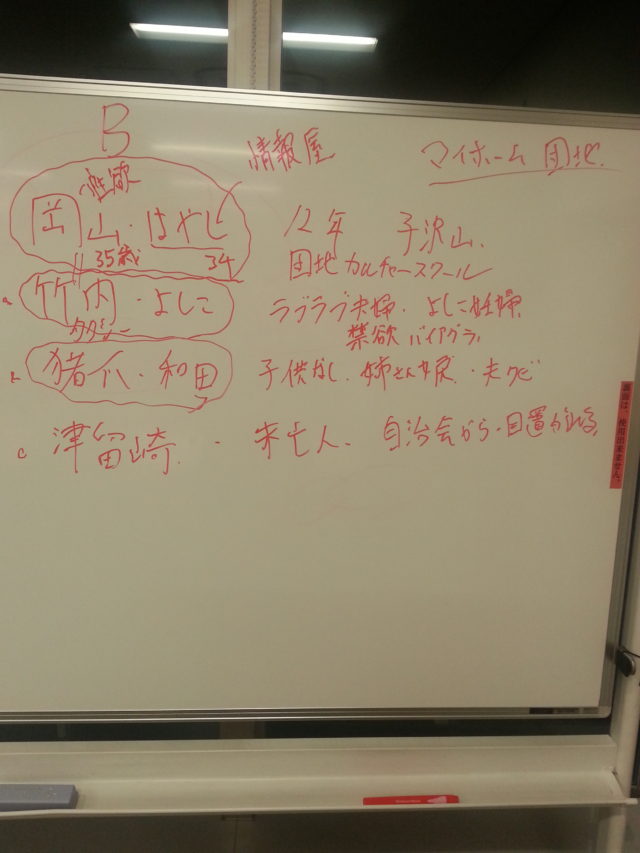 B 情報屋 マイホーム 団地
性欲
岡山・はやし 12年 子沢山、
35歳 34 団地 カルチャースクール
a 竹内・よしこ ラブラブ夫婦・よしこ妊婦
タダシ 禁欲 バイアグラ
b 猪爪・和田 子供なし、姉さん女房・夫クビ
c 津留崎 ・ 未亡人、自治会から・目置かれる
裏面は、使用出来ません。